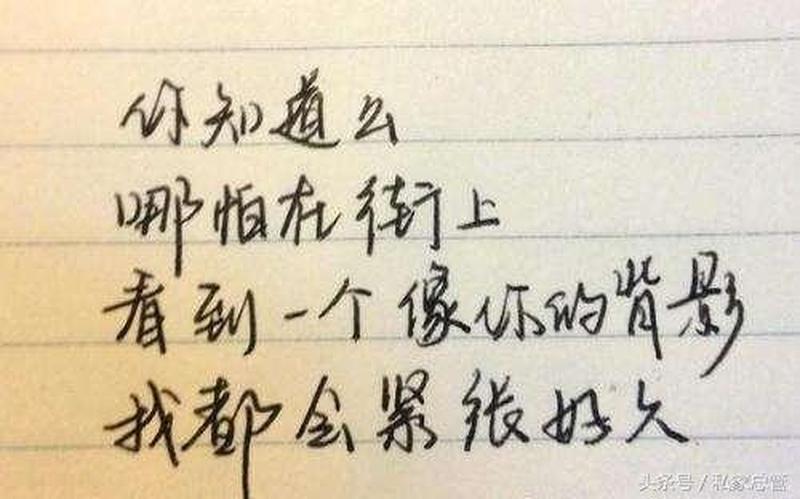 你知道么
哪怕在街上
看到一个像你的背影
我都会紧张好久
头条号/私家总管